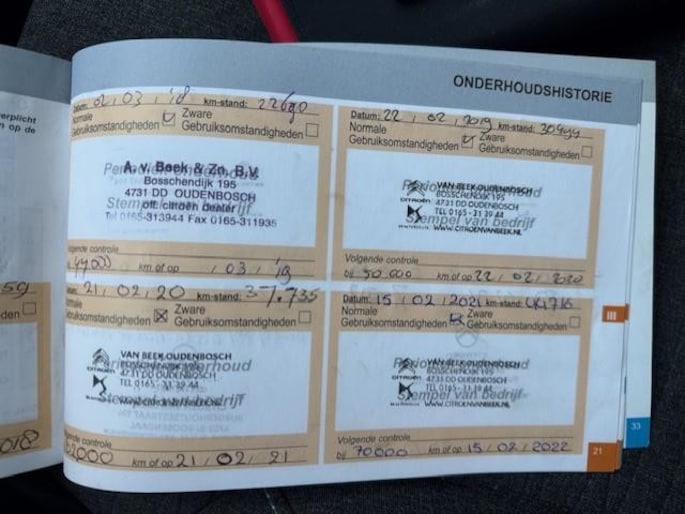 erplicht
n op de
59
den
018
ONDERHOUDSHISTORIE
Datum: 02 / 03 / '18 km-stand: 22690
Normale
Gebruiksomstandigheden
Zware
Gebruiksomstandigheden
A. v. Beek & Zn. B.V.
Bosschendijk 195
4731 DD OUDENBOSCH
off. citroën dealer
Tel 0165-313944 Fax 0165-311935
Stempel van bedrijf
lgende controle
km of op / 03 / '19
Datum: 22 / 02 / 2019 km-stand:
Normale
Gebruiksomstandigheden
Zware
Gebruiksomstandigheden
VAN BEEK OUDENBOSCH
BOSSCHENDIJK 195
4731 DD OUDENBOSCH
TEL 0165 - 31 39 44
WWW.CITROENVANBEEK.NL
CITROËN
Stempel van bedrijf
Volgende controle
bij 50.000 km of op 22 / 02 / 2020
21 / 02 / 20 km-stand: 37.735
male
Gebruiksomstandigheden
Zware
Gebruiksomstandigheden
VAN BEEK OUDENBOSCH
BOSSCHENDIJK 195
4731 DD OUDENBOSCH
TEL 0165 - 31 39 44
CITROËN
Stempel van bedrijf
de controle
2000 km of op 21 / 02 / 21
Datum: 15 / 02 / 2021 km-stand:
Normale
Gebruiksomstandigheden
Zware
Gebruiksomstandigheden
VAN BEEK OUDENBOSCH
BOSSCHENDIJK 195
4731 DD OUDENBOSCH
TEL 0165 - 31 39 44
WWW.CITROENVANBEEK.NL
CITROËN
Stempel van bedrijf
Volgende controle
bij 70000 km of op 15 / 02 / 2022
III
33
21